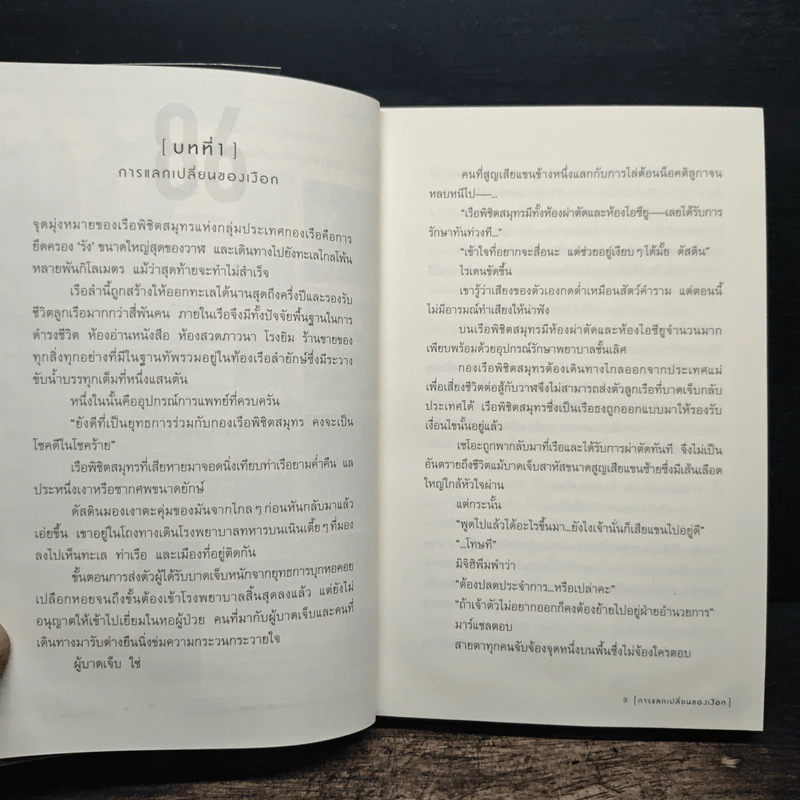 86
[ บทที่ 1 ]
การแลกเปลี่ยนของเงือก
จุดมุ่งหมายของเรือพิชิตสมุทรแห่งกลุ่มประเทศกองเรือคือการ
ยึดครอง ‘รัง’ ขนาดใหญ่สุดของวาฬ และเดินทางไปยังทะเลไกลโพ้น
หลายพันกิโลเมตร แม้ว่าสุดท้ายจะทำไม่สำเร็จ
เรือลำนี้ถูกสร้างให้ออกทะเลได้นานสุดถึงครึ่งปีและรองรับ
ชีวิตลูกเรือมากกว่าสี่พันคน ภายในเรือจึงมีทั้งปัจจัยพื้นฐานในการ
ดำรงชีวิต ห้องอ่านหนังสือ ห้องสวดภาวนา โรงยิม ร้านขายของ
ทุกสิ่งทุกอย่างที่มีในฐานทัพรวมอยู่ในท้องเรือลำยักษ์ซึ่งมีระวาง
ขับน้ำบรรทุกเต็มที่หนึ่งแสนตัน
หนึ่งในนั้นคืออุปกรณ์การแพทย์ที่ครบครัน
“ยังดีที่เป็นยุทธการร่วมกับกองเรือพิชิตสมุทร คงจะเป็น
โชคดีในโชคร้าย”
เรือพิชิตสมุทรที่เสียหายมาจอดนิ่งเทียบท่าเรือยามค่ำคืน แล
ประหนึ่งเงาหรือซากศพขนาดยักษ์
ดัสตินมองเงาตะคุ่มของมันจากไกลๆ ก่อนหันกลับมาแล้ว
เอ่ยขึ้น เขาอยู่ในโถงทางเดินโรงพยาบาลทหารบนเนินเตี้ยๆ ที่มอง
ลงไปเห็นทะเล ท่าเรือ และเมืองที่อยู่ติดกัน
ขั้นตอนการส่งตัวผู้ได้รับบาดเจ็บหนักจากยุทธการบุกหอคอย
เปลือกหอยจนถึงขั้นต้องเข้าโรงพยาบาลสิ้นสุดลงแล้ว แต่ยังไม่
อนุญาตให้เข้าไปเยี่ยมในหอผู้ป่วย คนที่มากับผู้บาดเจ็บและคนที่
เดินทางมารับต่างยืนนิ่งข่มความกระวนกระวายใจ
ผู้บาดเจ็บ ใช่
คนที่สูญเสียแขนข้างหนึ่งแลกกับการไล่ต้อนน็อคติลูกาจน
หลบหนีไป——...
“เรือพิชิตสมุทรมีทั้งห้องผ่าตัดและห้องไอซียู——เลยได้รับการ
รักษาทันท่วงที...”
“เข้าใจที่อยากจะสื่อนะ แต่ช่วยอยู่เงียบๆ ได้มั้ย ดัสติน”
ไรเดนขัดขึ้น
เขารู้ว่าเสียงของตัวเองกดต่ำเหมือนสัตว์คำราม แต่ตอนนี้
ไม่มีอารมณ์ทำเสียงให้น่าฟัง
บนเรือพิชิตสมุทรมีห้องผ่าตัดและห้องไอซียูจำนวนมาก
เพียบพร้อมด้วยอุปกรณ์รักษาพยาบาลชั้นเลิศ
กองเรือพิชิตสมุทรต้องเดินทางไกลออกจากประเทศแม่
เพื่อเสี่ยงชีวิตต่อสู้กับวาฬจึงไม่สามารถส่งตัวลูกเรือที่บาดเจ็บกลับ
ประเทศได้ เรือพิชิตสมุทรซึ่งเป็นเรือธงถูกออกแบบมาให้รองรับ
เงื่อนไขนั้นอยู่แล้ว
เซโอะถูกพากลับมาที่เรือและได้รับการผ่าตัดทันที จึงไม่เป็น
อันตรายถึงชีวิตแม้บาดเจ็บสาหัสขนาดสูญเสียแขนซ้ายซึ่งมีเส้นเลือด
ใหญ่ใกล้หัวใจผ่าน
แต่กระนั้น
“พูดไปแล้วได้อะไรขึ้นมา...ยังไงเจ้านั่นก็เสียแขนไปอยู่ดี”
“...โทษที”
มิจิฮิพึมพำว่า
“ต้องปลดประจำการ...หรือเปล่าคะ”
“ถ้าเจ้าตัวไม่อยากออกก็คงต้องย้ายไปอยู่ฝ่ายอำนวยการ”
มาร์เซลตอบ
สายตาทุกคนจับจ้องจุดหนึ่งบนพื้นซึ่งไม่จ้องใครตอบ
9 [ การแลกเปลี่ยนของเงือก ]